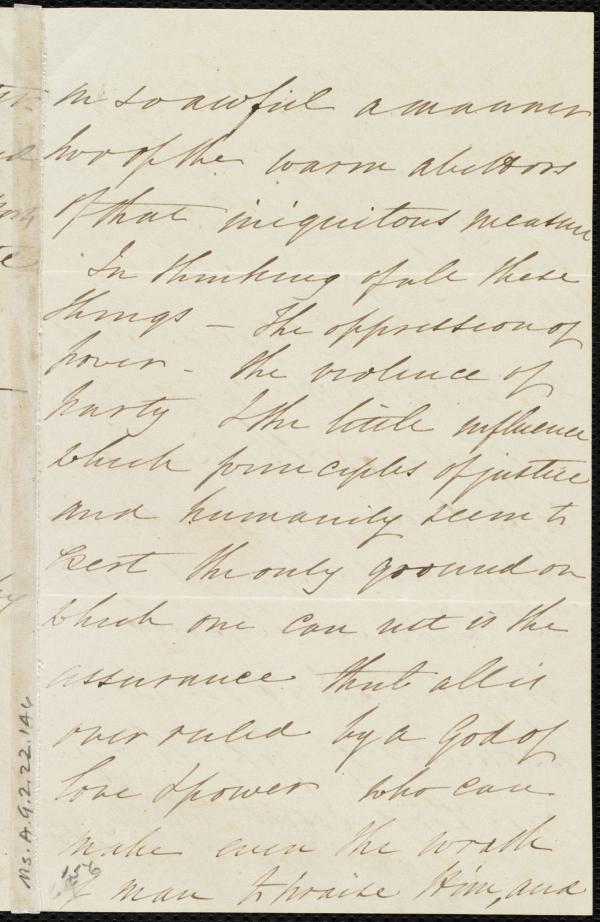 in so awful a manner
two of the warm abettors
of that iniquitous measure
In thinking of all these
things – the oppression of
power – the violence of
party & the little influence
which principles of justice
and humanity seem to
exert the only ground on
which one can rest is the
assurance that all is
over ruled by a God of
love & power who can
make even the wrath
of man to praise Him, and
Ms. A. 9. 2. 22. 146